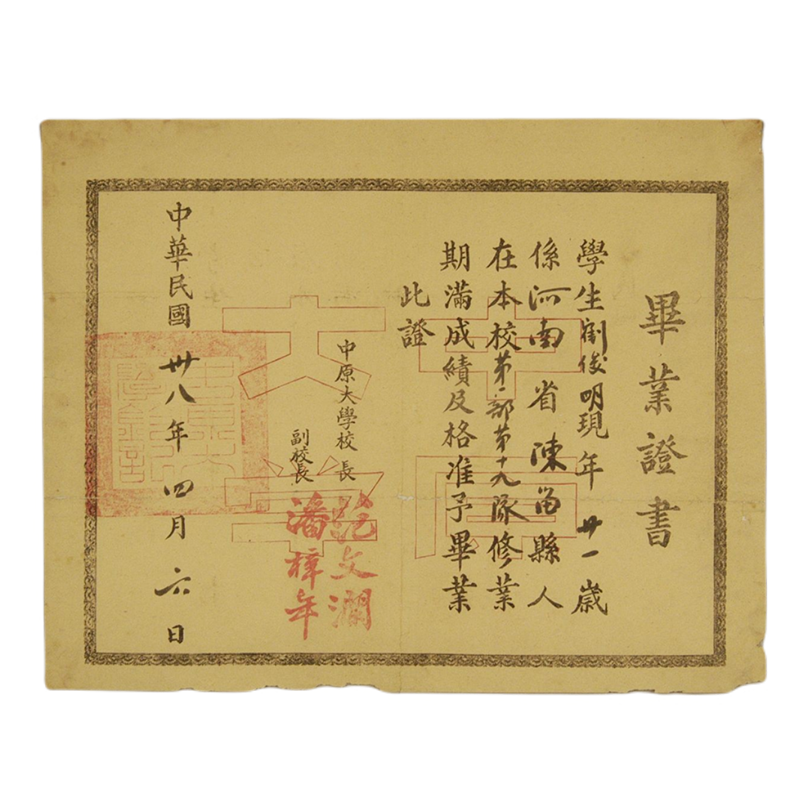 畢業證書
學生劉俊明現年廿一歲
係河南省陳留縣人
在本校第一部第十九隊修業
期滿成績及格准予畢業
此證
中原大學校長 范文瀾
副校長 潘梓年
中華民國卅八年四月六日
中原大學